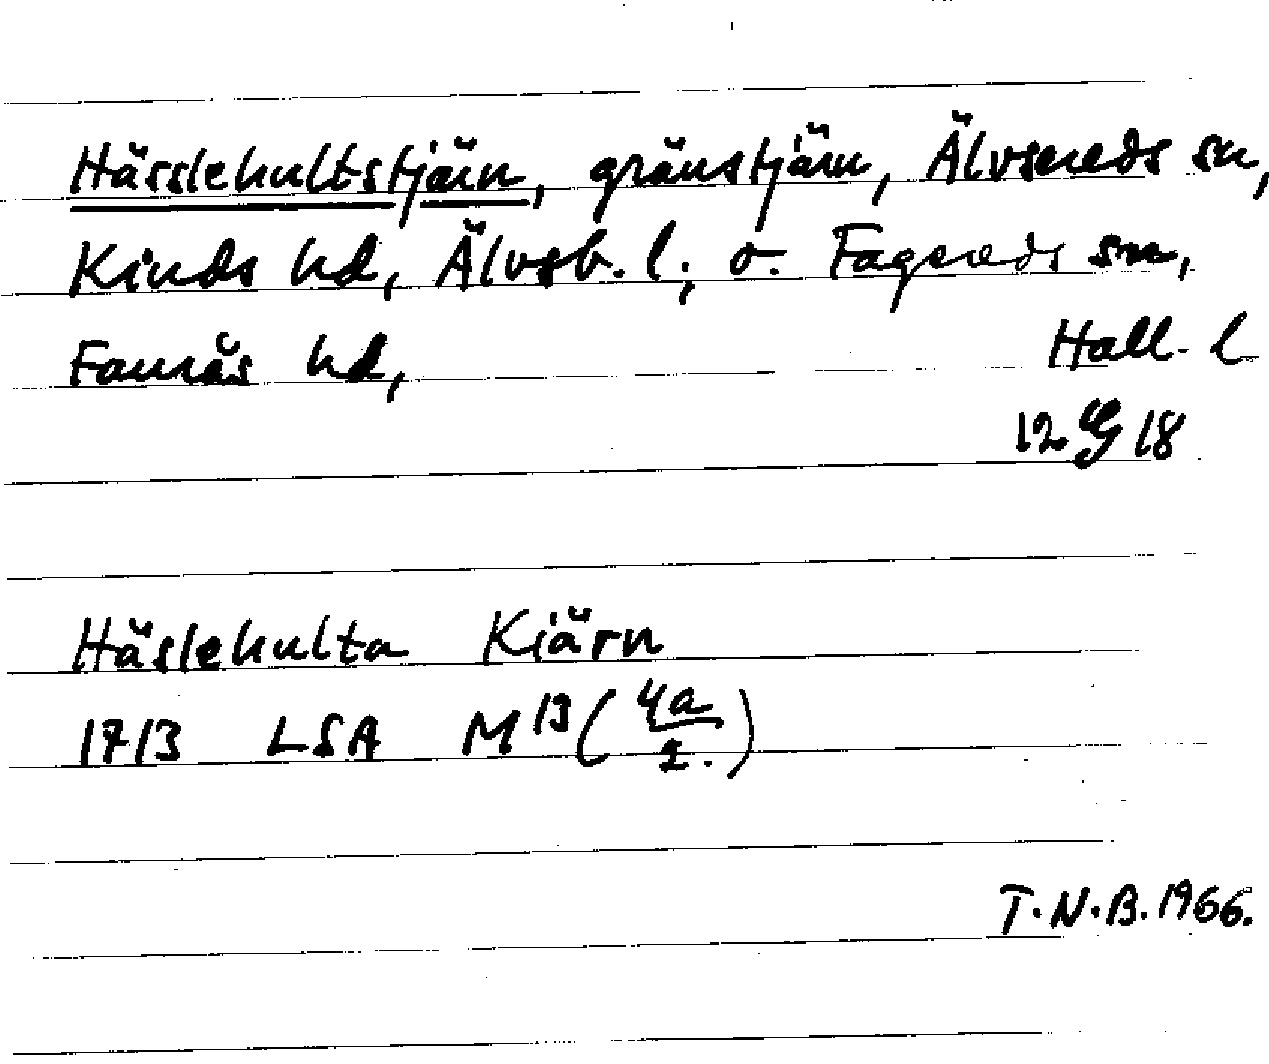 Hässlehultstjärn, gränstjärn, Älvsereds sn,
Kinds hd, Älvsb. l; o. Fagereds sn,
Faurås hd, Hall. l
12 18
Häslehulta Kiärn
1713 LSA M 13 (4a/1.)
T.N.B. 1966.